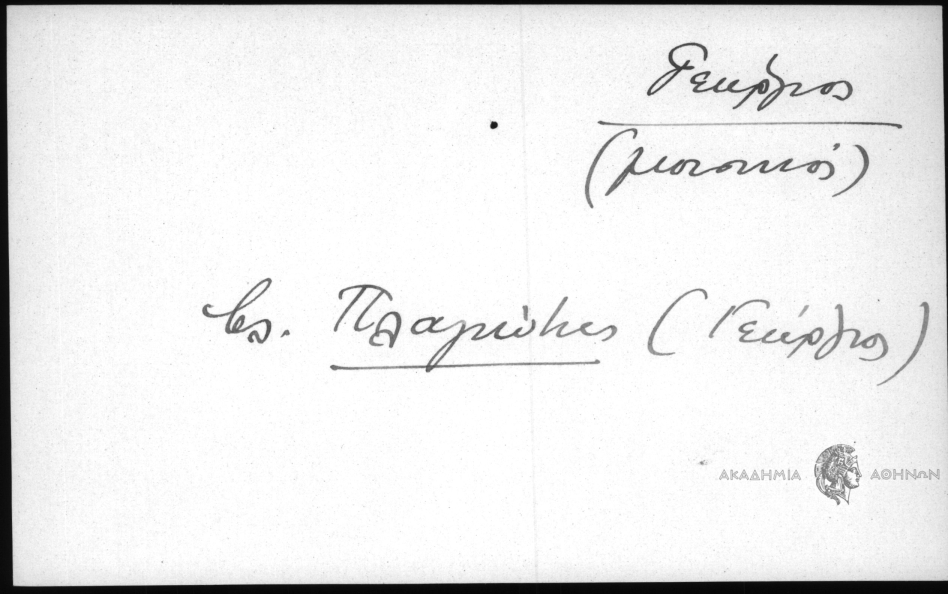 Γεώργιος
(μουσικός)
βλ. Πλαγιώτης (Γεώργιος)
ΑΚΑΔΗΜΙΑ ΑΘΗΝΩΝ